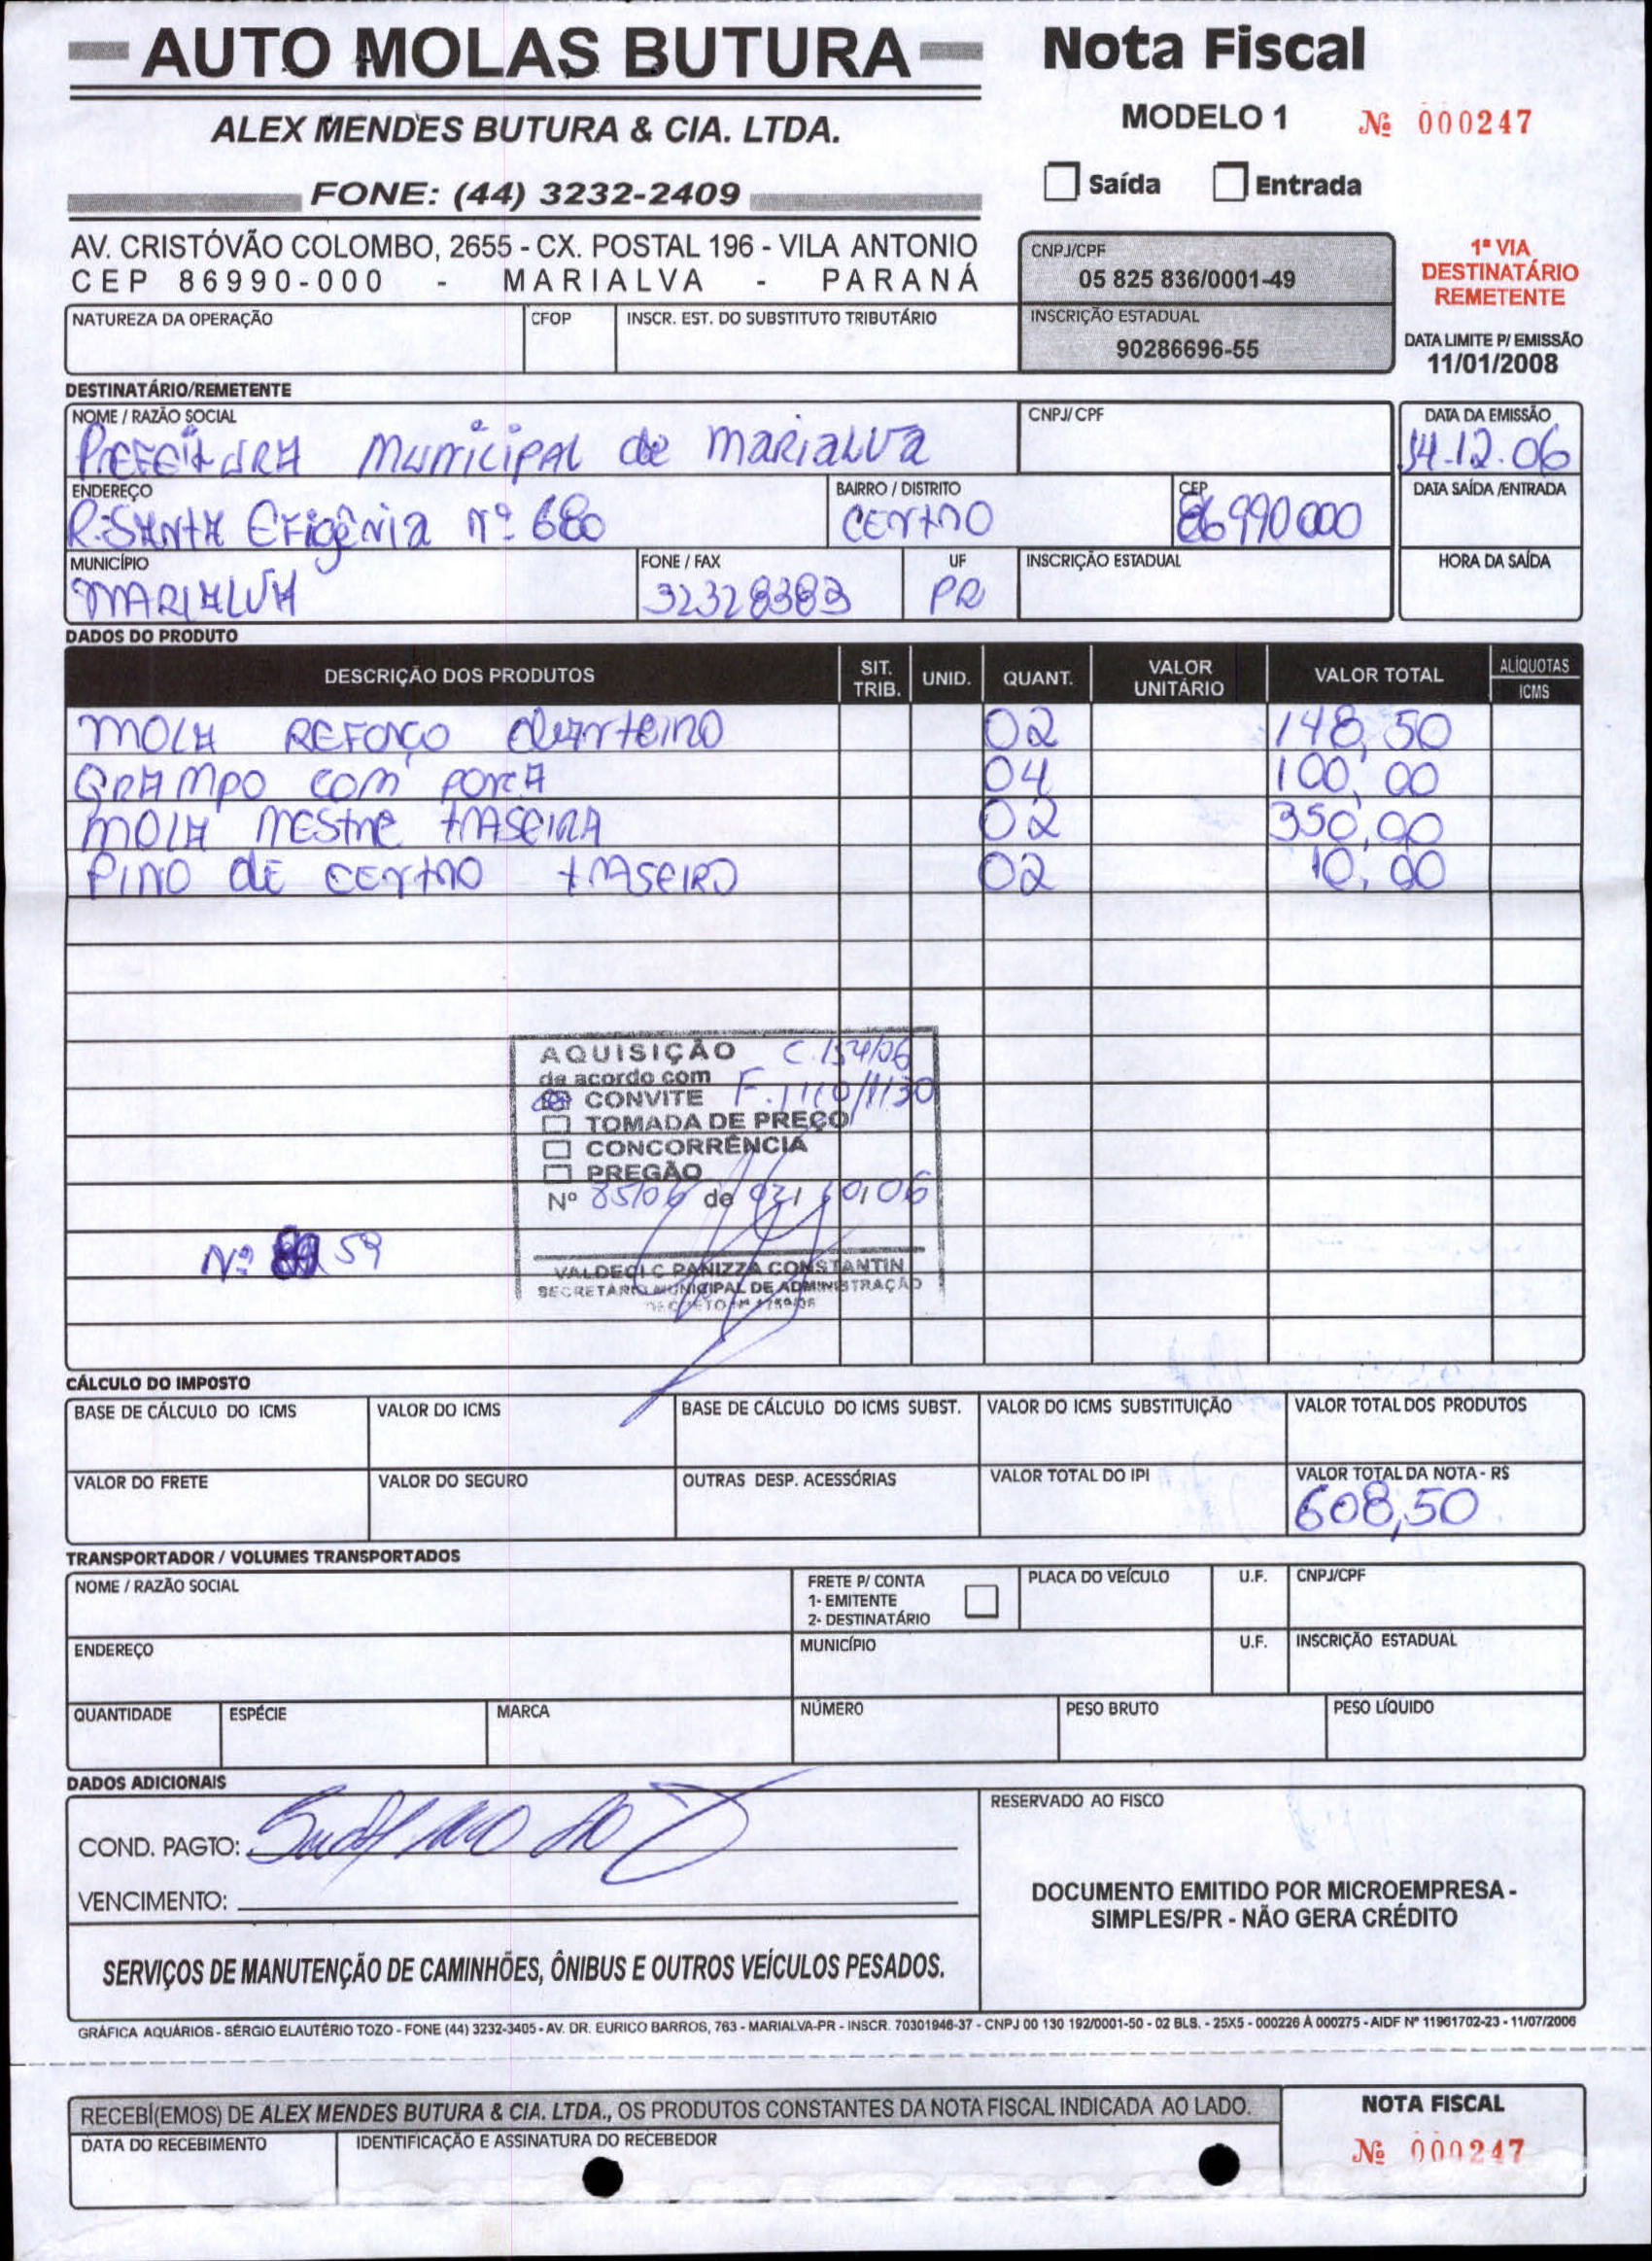 AUTO MOLAS BUTURA
Nota Fiscal
ALEX MENDES BUTURA & CIA. LTDA.
MODELO 1 Nº 000247
FONE: (44) 3232-2409
Saída Entrada
AV. CRISTÓVÃO COLOMBO, 2655 - CX. POSTAL 196 - VILA ANTONIO
CEP 86990-000 - MARIALVA - PARANÁ
CNPJ/CPF
05 825 836/0001-49
1ª VIA
DESTINATÁRIO
REMETENTE
NATUREZA DA OPERAÇÃO CFOP INSCR. EST. DO SUBSTITUTO TRIBUTÁRIO
INSCRIÇÃO ESTADUAL
90286696-55
DATA LIMITE P/ EMISSÃO
11/01/2008
DESTINATÁRIO/REMETENTE
NOME / RAZÃO SOCIAL CNPJ/CPF DATA DA EMISSÃO
PREFEITURA Municipal de MARIALVA 14.12.06
ENDEREÇO BAIRRO / DISTRITO CEP DATA SAÍDA /ENTRADA
R. SANTA EFigêNia nº 680 CENTRO 86990000
MUNICÍPIO FONE / FAX UF INSCRIÇÃO ESTADUAL HORA DA SAÍDA
MARIALVA 32328383 PR
DADOS DO PRODUTO
DESCRIÇÃO DOS PRODUTOS SIT. TRIB. UNID. QUANT. VALOR UNITÁRIO VALOR TOTAL ALÍQUOTAS ICMS
MOLA REFORÇO 02 148,50
GRAMPO COM PORCA 04 100,00
MOLA MESTRE TRASEIRA 02 350,00
PINO DE CENTRO TRASEIRO 02 10,00
AQUISIÇÃO C.154/06
de acordo com
CONVITE F.1110/1130
TOMADA DE PREÇO
CONCORRÊNCIA
PREGÃO
Nº 85/06 de /06
Nº 59
VALDECI C PANIZZA CONSTANTIN
SECRETARIO MUNICIPAL DE ADMINISTRAÇÃO
CÁLCULO DO IMPOSTO
BASE DE CÁLCULO DO ICMS VALOR DO ICMS BASE DE CÁLCULO DO ICMS SUBST. VALOR DO ICMS SUBSTITUIÇÃO VALOR TOTAL DOS PRODUTOS
VALOR DO FRETE VALOR DO SEGURO OUTRAS DESP. ACESSÓRIAS VALOR TOTAL DO IPI VALOR TOTAL DA NOTA - R$
608,50
TRANSPORTADOR / VOLUMES TRANSPORTADOS
NOME / RAZÃO SOCIAL FRETE P/ CONTA PLACA DO VEÍCULO U.F. CNPJ/CPF
1- EMITENTE
2- DESTINATÁRIO
ENDEREÇO MUNICÍPIO U.F. INSCRIÇÃO ESTADUAL
QUANTIDADE ESPÉCIE MARCA NÚMERO PESO BRUTO PESO LÍQUIDO
DADOS ADICIONAIS
RESERVADO AO FISCO
COND. PAGTO:
VENCIMENTO:
DOCUMENTO EMITIDO POR MICROEMPRESA -
SIMPLES/PR - NÃO GERA CRÉDITO
SERVIÇOS DE MANUTENÇÃO DE CAMINHÕES, ÔNIBUS E OUTROS VEÍCULOS PESADOS.
GRÁFICA AQUÁRIOS - SÉRGIO ELAUTÉRIO TOZO - FONE (44) 3232-3405 - AV. DR. EURICO BARROS, 763 - MARIALVA-PR - INSCR. 70301946-37 - CNPJ 00 130 192/0001-50 - 02 BLS. - 25X5 - 000226 À 000275 - AIDF Nº 11961702-23 - 11/07/2006
RECEBI(EMOS) DE ALEX MENDES BUTURA & CIA. LTDA., OS PRODUTOS CONSTANTES DA NOTA FISCAL INDICADA AO LADO.
NOTA FISCAL
DATA DO RECEBIMENTO IDENTIFICAÇÃO E ASSINATURA DO RECEBEDOR
Nº 000247